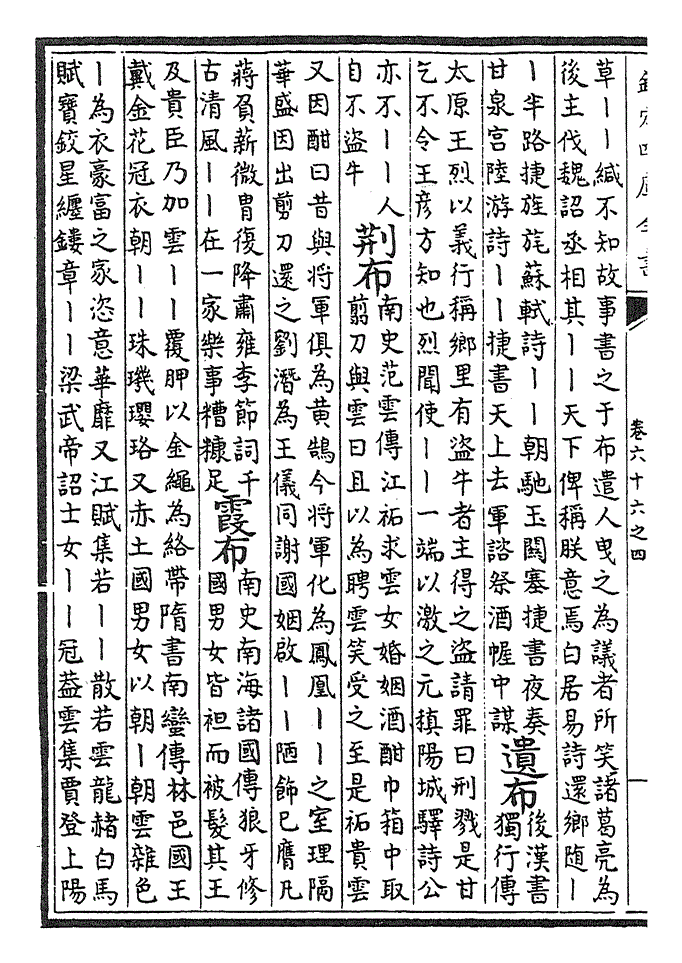 欽定四庫全書
卷六十六之四
草丨丨緘不知故事書之于布遣人曳之為議者所笑諸葛亮為
後主伐魏詔丞相其丨丨天下俾稱朕意焉白居易詩還鄉随丨
丨半路捷旌旄蘇軾詩丨丨朝馳玉闗塞捷書夜奏
甘泉宮陸游詩丨丨捷書天上去軍諮祭酒幄中謀
遺布
後漢書
獨行傳
太原王烈以義行稱鄉里有盜牛者主得之盜請罪曰刑戮是甘
乞不令王彦方知也烈聞使丨丨一端以激之元稹陽城驛詩公
亦不丨丨人
自不盜牛
荆布
南史范雲傳江祏求雲女婚姻酒酣巾箱中取
剪刀與雲曰且以為聘雲笑受之至是祏貴雲
又因酣曰昔與将軍俱為黄鵠今将軍化為鳳凰丨丨之室理隔
華盛因出剪刀還之劉潛為王儀同謝國姻啟丨丨陋飾已膺凡
蔣貟薪微胄復降肅雍李節詞千
古清風丨丨在一家樂事糟糠足
霞布
南史南海諸國傳狼牙修
國男女皆袒而被髮其王
及貴臣乃加雲丨丨覆胛以金繩為絡帶隋書南蠻傳林邑國王
戴金花冠衣朝丨丨珠璣瓔珞又赤土國男女以朝丨朝雲雜色
丨為衣豪富之家恣意華靡又江賦集若丨丨散若雲龍赭白馬
賦寶鉸星纏鏤章丨丨梁武帝詔士女丨丨冠葢雲集賈登上陽